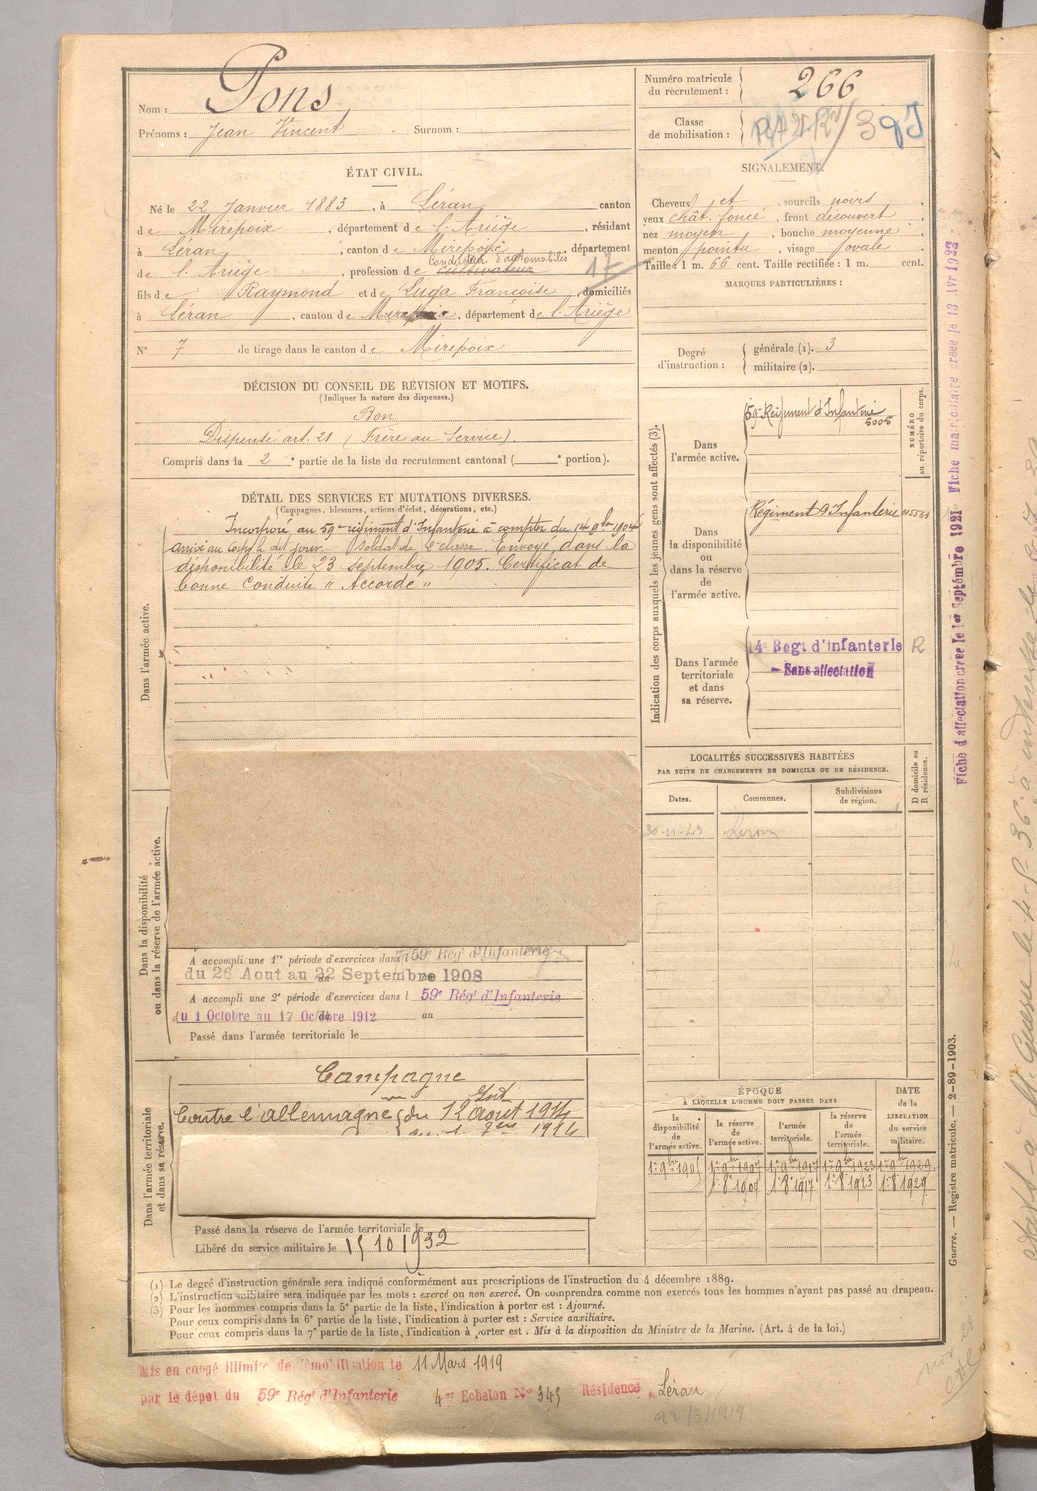 Nom : Pons
Prénoms : Jean Vincent . Surnom :
Numéro matricule du recrutement : 266
Classe de mobilisation :
ÉTAT CIVIL.
Né le 22 Janvier 1883, à Léran, canton
de Mirepoix, département de l'Ariège, résidant
à Léran, canton de Mirepoix, département
conducteur d'automobiles
de l'Ariège, profession de cultivateur 17
fils de Raymond et de Luga Françoise, domiciliés
à Léran, canton de Mirepoix, département de l'Ariège
N° 7 de tirage dans le canton de Mirepoix
SIGNALEMENT.
Cheveux et sourcils noirs,
yeux chât. foncé, front découvert,
nez moyen, bouche moyenne,
menton pointu, visage ovale
Taille : 1 m. 66 cent. Taille rectifiée : 1 m. cent.
MARQUES PARTICULIÈRES :
Degré d'instruction : générale (1). 3
militaire (2).
DÉCISION DU CONSEIL DE RÉVISION ET MOTIFS.
(Indiquer la nature des dispenses.)
Bon
Dispensé art. 21 (Frère au Service).
Compris dans la 2e partie de la liste du recrutement cantonal ( e portion).
DÉTAIL DES SERVICES ET MUTATIONS DIVERSES.
(Campagnes, blessures, actions d'éclat, décorations, etc.)
Dans l'armée active.
Incorporé au 59e régiment d'Infanterie à compter du 14 9bre 1904
arrivé au corps le dit jour. Soldat de 2e classe. Envoyé dans la
disponibilité le 23 septembre 1905. Certificat de
bonne Conduite "Accordé"
Indication des corps auxquels les jeunes gens sont affectés (3).
NUMÉRO au répertoire du corps.
Dans l'armée active.
59e Régiment d'Infanterie
5005
Dans la disponibilité ou dans la réserve de l'armée active.
Régiment d'Infanterie
Dans l'armée territoriale et dans sa réserve.
14e Regt d'infanterie R
Sans affectation
LOCALITÉS SUCCESSIVES HABITÉES
PAR SUITE DE CHANGEMENTS DE DOMICILE OU DE RÉSIDENCE.
Dates. Communes. Subdivisions de région. D domicile ou R résidence.
Léran
Dans la disponibilité ou dans la réserve de l'armée active.
A accompli une 1re période d'exercices dans 59e Régt d'Infanterie
du 26 Aout au 22 Septembre 1908
A accompli une 2e période d'exercices dans l 59e Régt d'Infanterie
du 1 Octobre au 17 Octobre 1912 au
Passé dans l'armée territoriale le
Dans l'armée territoriale et dans sa réserve.
Campagne
Contre l'allemagne du 12 août 1914
Passé dans la réserve de l'armée territoriale le
Libéré du service militaire le 15 10 1932
ÉPOQUE
À LAQUELLE L'HOMME DOIT PASSER DANS
la disponibilité de l'armée active. la réserve de l'armée active. l'armée territoriale. la réserve de l'armée territoriale. DATE de la LIBÉRATION du service militaire.
1er 9bre 1905 1er 9bre 1907 1er 9bre 1917 1er 9bre 1923 1er 9bre 1929
1er 8e 1907 1er 8e 1917 1er 8e 1923 1er 8e 1929
(1) Le degré d'instruction générale sera indiqué conformément aux prescriptions de l'instruction du 4 décembre 1889.
(2) L'instruction militaire sera indiquée par les mots : exercé ou non exercé. On comprendra comme non exercés tous les hommes n'ayant pas passé au drapeau.
(3) Pour les hommes compris dans la 5e partie de la liste, l'indication à porter est : Ajourné.
Pour ceux compris dans la 6e partie de la liste, l'indication à porter est : Service auxiliaire.
Pour ceux compris dans la 7e partie de la liste, l'indication à porter est : Mis à la disposition du Ministre de la Marine. (Art. 4 de la loi.)
Mis en congé illimité de démobilisation le 11 Mars 1919
par le dépôt du 59e Rég t d'Infanterie 4e Echelon N° 345 Résidence Léran
Fiche d'affectation créée le 1er Septembre 1921 Fiche matriculaire créée le 13 Avr 1923
Guerre. — Registre matricule. — 2-89-1903.